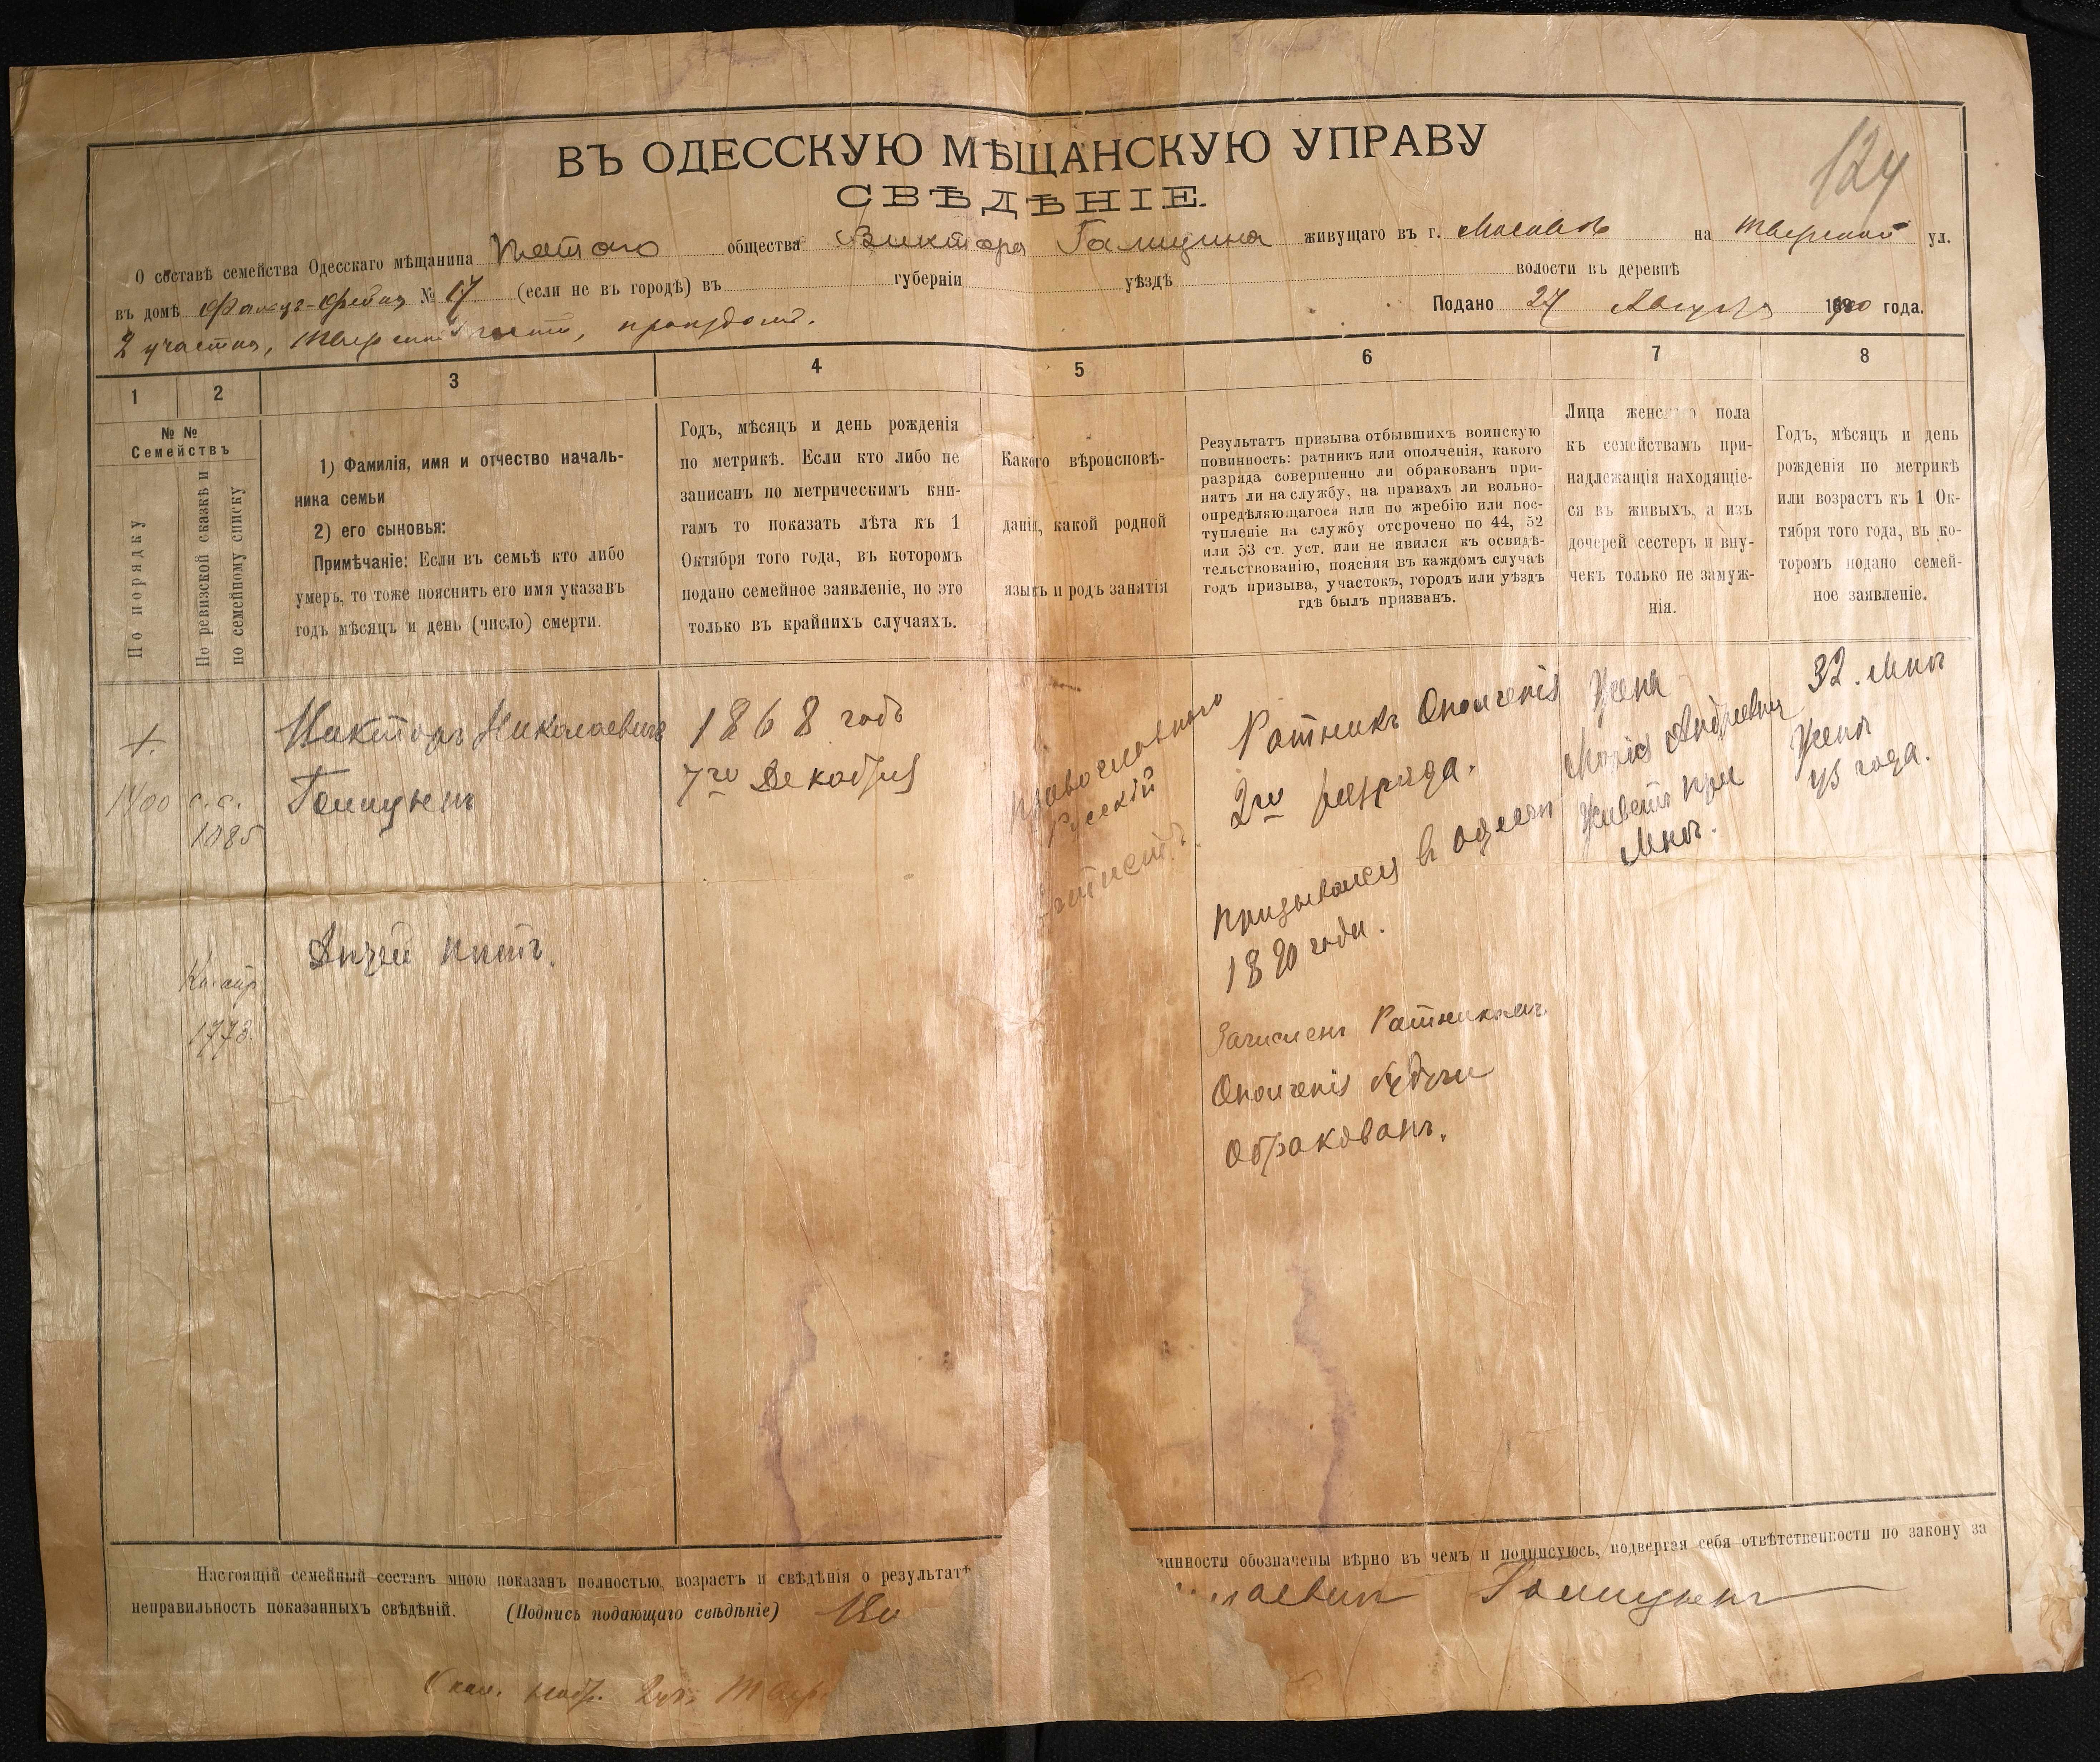 124
ВЪ ОДЕССКУЮ МѢЩАНСКУЮ УПРАВУ
СВѢДѢНІЕ.
О составѣ семейства Одесскаго мѣщанина Пятаго общества Виктора Галицина живущаго въ г. Москвѣ на Тверской ул.
въ домѣ Фальцъ-Фейна № 17 (если не въ городѣ) въ губерніи уѣздѣ волости въ деревнѣ
2 участка, Тверской части,
Подано 27 Августа 1900 года.
1
2
3
4
5
6
7
8
№ №
Семействъ
По порядку
По ревизской сказкѣ и
по семейному списку
1) Фамилія, имя и отчество началь-
ника семьи
2) его сыновья:
Примѣчаніе: Если въ семьѣ кто либо
умеръ, то тоже пояснить его имя указавъ
годъ мѣсяцъ и день (число) смерти.
Годъ, мѣсяцъ и день рожденія
по метрикѣ. Если кто либо не
записанъ по метрическимъ кни-
гамъ то показать лѣта къ 1
Октября того года, въ которомъ
подано семейное заявленіе, но это
только въ крайнихъ случаяхъ.
Какого вѣроисповѣ-
данія, какой родной
языкъ и родъ занятія
Результатъ призыва отбывшихъ воинскую
повинность: ратникъ или ополченія, какого
разряда совершенно ли обракованъ при-
нятъ ли на службу, на правахъ ли вольно-
опредѣляющагося или по жребію или пос-
тупленіе на службу отсрочено по 44, 52
или 53 ст. уст. или не явился къ освидѣ-
тельствованію, поясняя въ каждомъ случаѣ
годъ призыва, участокъ, городъ или уѣздъ
гдѣ былъ призванъ.
Лица женскаго пола
къ семействамъ при-
надлежащія находящіе-
ся въ живыхъ, а изъ
дочерей сестеръ и вну-
чекъ только не замуж-
нія.
Годъ, мѣсяцъ и день
рожденія по метрикѣ
или возрастъ къ 1 Ок-
тября того года, въ ко-
торомъ подано семей-
ное заявленіе.
1400
с. с.
1085
1773.
Викторъ Николаевичъ
Галицынъ
Дѣтей нѣтъ.
1868 годъ
7го Декабря
Православнаго
Русскій
Артистъ
Ратникъ Ополченія
2го разряда.
Призывался в Одессѣ
1890 годи.
Зачисленъ Ратникамъ
Ополченія будучи
Обракованъ.
Жена
Марія Андреевна
Живетъ при
Мнѣ.
32. Мнѣ
Женѣ
45 года.
Настоящій семейный составъ мною показанъ полностью, возрастъ и свѣдѣнія о результатѣ
винности обозначены вѣрно въ чемъ и подписуюсь, подвергая себя отвѣтственности по закону за
неправильность показанныхъ свѣдѣній. (Подпись подающаго свѣдѣніе) Ви
лаевич Галицынъ